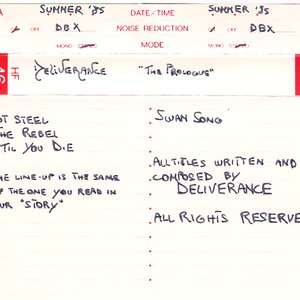 A SUMMER '85 DATE/TIME SUMMER '85
OFF DBX NOISE REDUCTION ON OFF DBX
MONO MODE MONO
HF DELIVERANCE "THE PROLOGUE"
OT STEEL
HE REBEL
TIL YOU DIE
HE LINE-UP IS THE SAME
F THE ONE YOU READ IN
UR "STORY"
SWAN SONG
ALL TITLES WRITTEN AND
COMPOSED BY
DELIVERANCE
ALL RIGHTS RESERVE